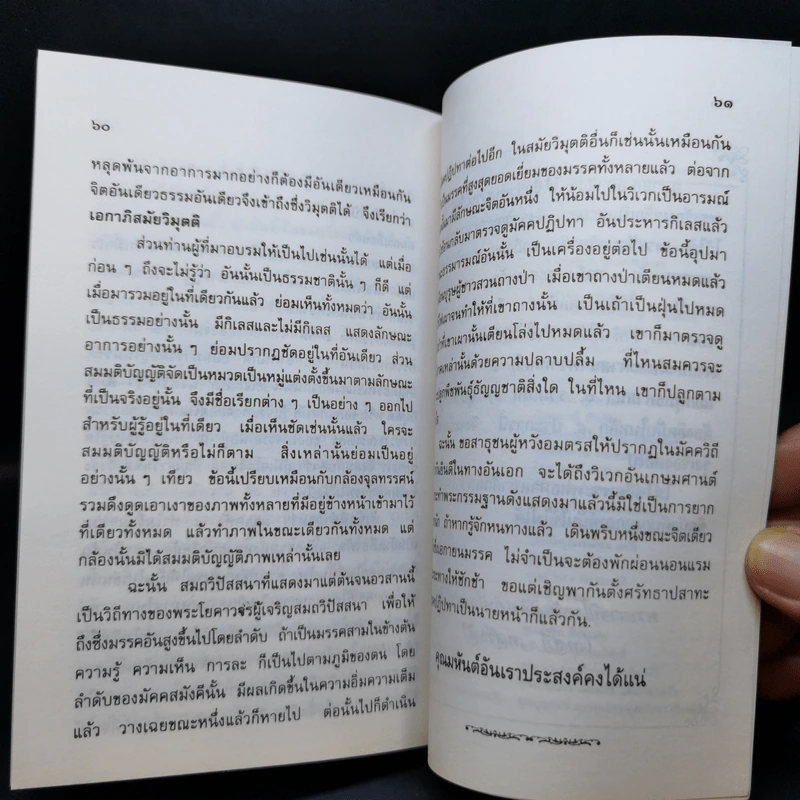 ๖๐
หลุดพ้นจากอาการมากอย่างก็ต้องมีอันเดียวเหมือนกัน
จิตอันเดียวธรรมอันเดียวจึงเข้าถึงซึ่งวิมุตติได้ จึงเรียกว่า
เอกาภิสมัยวิมุตติ
ส่วนท่านผู้ที่มาอบรมให้เป็นไปเช่นนั้นได้ แต่เมื่อ
ก่อน ๆ ถึงจะไม่รู้ว่า อันนั้นเป็นธรรมชาตินั้น ๆ ก็ดี แต่
เมื่อมารวมอยู่ในที่เดียวกันแล้ว ย่อมเห็นทั้งหมดว่า อันนั้น
เป็นธรรมอย่างนั้น มีกิเลสและไม่มีกิเลส แสดงลักษณะ
อาการอย่างนั้น ๆ ย่อมปรากฏชัดอยู่ในที่อันเดียว ส่วน
สมมติบัญญัติจัดเป็นหมวดเป็นหมู่แต่งตั้งขึ้นมาตามลักษณะ
ที่เป็นจริงอยู่นั้น จึงมีชื่อเรียกต่าง ๆ เป็นอย่าง ๆ ออกไป
สำหรับผู้รู้อยู่ในที่เดียว เมื่อเห็นชัดเช่นนั้นแล้ว ใครจะ
สมมติบัญญัติหรือไม่ก็ตาม สิ่งเหล่านั้นย่อมเป็นอยู่
อย่างนั้น ๆ เทียว ข้อนี้เปรียบเหมือนกับกล้องจุลทรรศน์
รวมดึงดูดเอาเงาของภาพทั้งหลายที่มีอยู่ข้างหน้าเข้ามาไว้
ที่เดียวทั้งหมด แล้วทำภาพในขณะเดียวกันทั้งหมด แต่
กล้องนั้นมิได้สมมติบัญญัติภาพเหล่านั้นเลย
ฉะนั้น สมถวิปัสสนาที่แสดงมาแต่ต้นจนอวสานนี้
เป็นวิถีทางของพระโยคาวจรผู้เจริญสมถวิปัสสนา เพื่อให้
ถึงซึ่งมรรคอันสูงขึ้นไปโดยลำดับ ถ้าเป็นมรรคสามในข้างต้น
ความรู้ ความเห็น การละ ก็เป็นไปตามภูมิของตน โดย
ลำดับของมัคคสมังคีนั้น มีผลเกิดขึ้นในความอิ่มความเต็ม
แล้ว วางเฉยขณะหนึ่งแล้วก็หายไป ต่อนั้นไปก็ดำเนิน
๖๑
ปฏิปทาต่อไปอีก ในสมัยวิมุตติอื่นก็เช่นนั้นเหมือนกัน
เป็นมรรคที่สูงสุดยอดเยี่ยมของมรรคทั้งหลายแล้ว ต่อจาก
มีลักษณะจิตอันหนึ่ง ให้น้อมไปในวิเวกเป็นอารมณ์
กลับมาตรวจดูมัคคปฏิปทา อันประหารกิเลสแล้ว
ธรรมารมณ์อันนั้น เป็นเครื่องอยู่ต่อไป ข้อนี้อุปมา
บุรุษผู้ชาวสวนถางป่า เมื่อเขาถางป่าเตียนหมดแล้ว
จนทำให้ที่เขาถางนั้น เป็นเถ้าเป็นฝุ่นไปหมด
ที่เขาเผานั้นเตียนโล่งไปหมดแล้ว เขาก็มาตรวจดู
เหล่านั้นด้วยความปลาบปลื้ม ที่ไหนสมควรจะ
ปลูกพืชพันธุ์ธัญญชาติสิ่งใด ในที่ไหน เขาก็ปลูกตาม
ฉะนั้น ขอสาธุชนผู้หวังอมตรสให้ปรากฏในมัควิถี
ยินดีในทางอันเอก จะได้ถึงวิเวกอันเกษมศานต์
พระกรรมฐานดังแสดงมาแล้วนี้มิใช่เป็นการยาก
ถ้าหากรู้จักหนทางแล้ว เดินพริบหนึ่งขณะจิตเดียว
มรรค ไม่จำเป็นจะต้องพักผ่อนนอนแรม
ทางให้ชักช้า ขอแต่เชิญพากันตั้งศรัทธาปสาทะ
ปฏิปทาเป็นนายหน้าก็แล้วกัน
คุณมหันต์อันเราประสงค์คงได้แน่